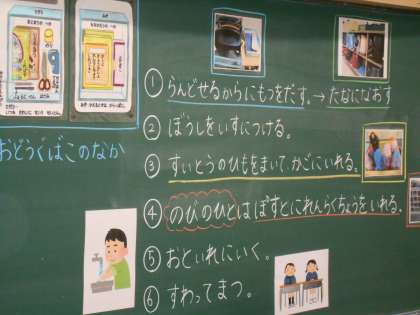 おどうぐばこのなか
① らんどせるからにもつをだす。→ たなになおす
② ぼうしをいすにつける。
③ すいとうのひもをまいて、かごにいれる。
④ のびのびとはぽすとにれんらくちょうをいれる。
⑤ おといれにいく。
⑥ すわってまつ。